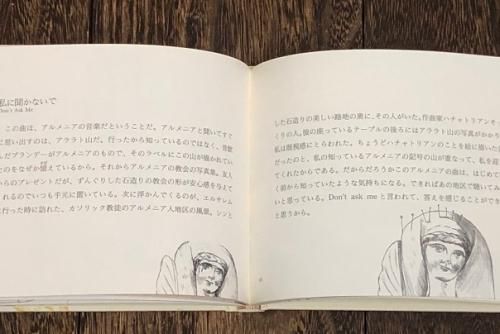 私に聞かないで
Don't Ask Me
この曲は、アルメニアの音楽だということだ。アルメニアと聞いてすぐ
に思い出すのは、アララト山だ。行ったから知っているのではなく、昔
んだブランデーがアルメニアのもので、そのラベルにこの山が描かれてい
たのをなぜか憶えているから。それからアルメニアの教会の写真集。友人
らのプレゼントだが、ずんぐりした石造りの教会の形が安心感を与えて
れるのでいつも手元に置いている。次に浮かんでくるのが、エルサレム
に行った時に訪れた、カソリック教徒のアルメニア人地区の風景。シンと
した石造りの美しい路地の奥に、その人がいた。作曲家ハチャトリアンそっ
くりの人。彼の座っているテーブルの後ろにはアララト山の写真がかか
私は既視感にとらわれた。ちょうどハチャトリアンのことを絵に描いた
だったのと、私の知っているアルメニアの記号の山が重なって、私を
れたからである。だからだろうかこのアルメニアの曲は、はじめて
く前から知っていたような気持ちになる。できればあの地区で聴いてみ
いと思っている。Don't ask me と言われて、答えを感じることができ
と思うから。